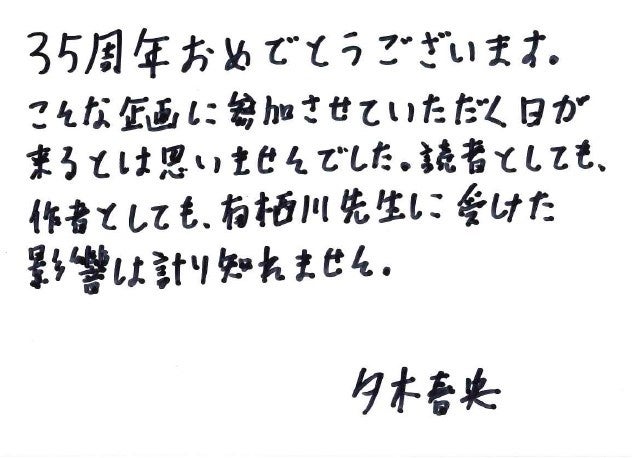 35周年おめでとうございます。
こんな企画に参加させていただく日が
来るとは思いませんでした。読者としても、
作者としても、有栖川先生に受けた
影響は計り知れません。
夕木春央